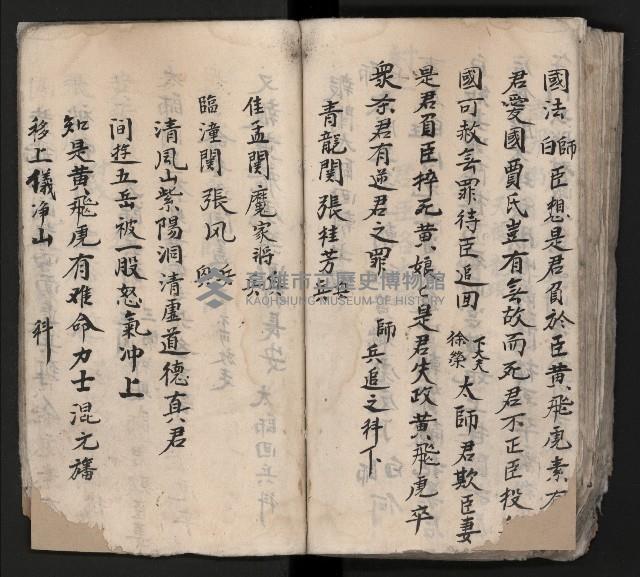 國法 師白 臣想是君負於臣黃飛虎素
君愛國賈氏豈有無故而死君不正臣投
國可赦無罪待臣追回 下大夫徐榮 太師君欺臣妻
是君負臣摔死黃娘々是君失政黃飛虎卒
衆杀君有逆君之罪 師 兵追之科下
青龍関張桂芳 兵
佳孟関魔家將 兵
臨潼関張风 兵
清風山紫陽洞清虛道德真君
间遊五岳被一股怒氣冲上
知是黃飛虎有难命力士混元旛
移上儀净山 科
高雄市立歷史博物館
KAOHSIUNG MUSEUM OF HISTORY